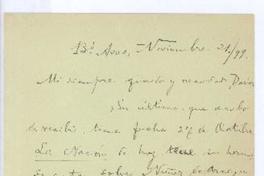 Bs Aires, Noviembre 21/99.
Mi siempre querido y recordado Darío
¡Su última, que acabo
de recibir, tiene fecha 27 de Octubre
La Nación de hoy trae su hermo
sobre Núñez de Arce